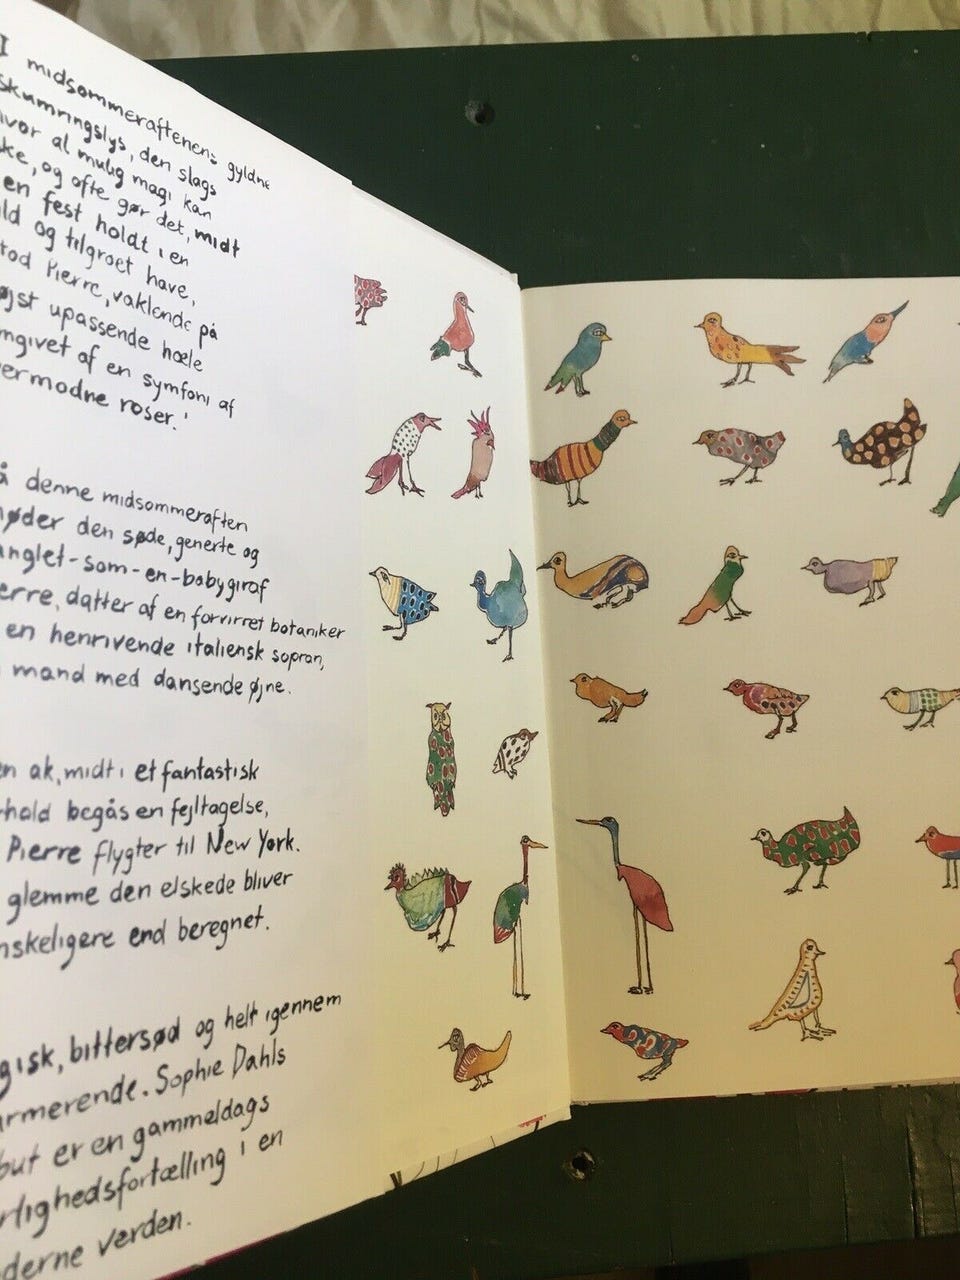 I midsommeraftenens gyldne
skumringslys, den slags
hvor al mulig magi kan
ske, og ofte gør det, midt
en fest holdt i en
og tilgroet have,
Pierre, vaklende på
upassende hæle
af en symfoni af
roser.'
denne midsommeraften
den søde, generte og
-som-en-babygiraf
datter af en forvirret botaniker
en henrivende italiensk sopran,
mand med dansende øjne.
ak, midt i et fantastisk
begås en fejltagelse,
Pierre flygter til New York.
glemme den elskede bliver
end beregnet.
bittersød og helt igennem
Sophie Dahls
er en gammeldags
i en
verden.